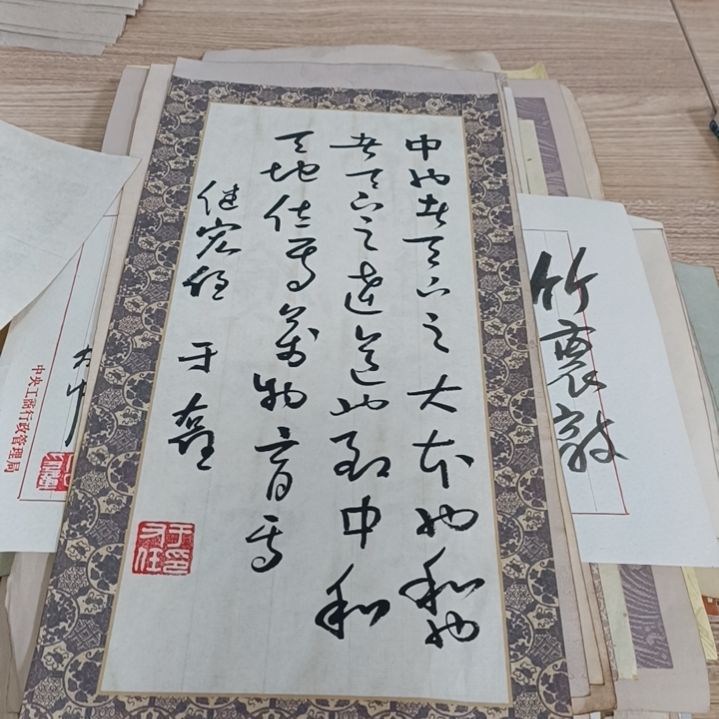 中也者天下之大本也和也
者天下之達道也致中和
天地位焉萬物育焉
于右任
于印
右任
竹
中央工商行政管理局